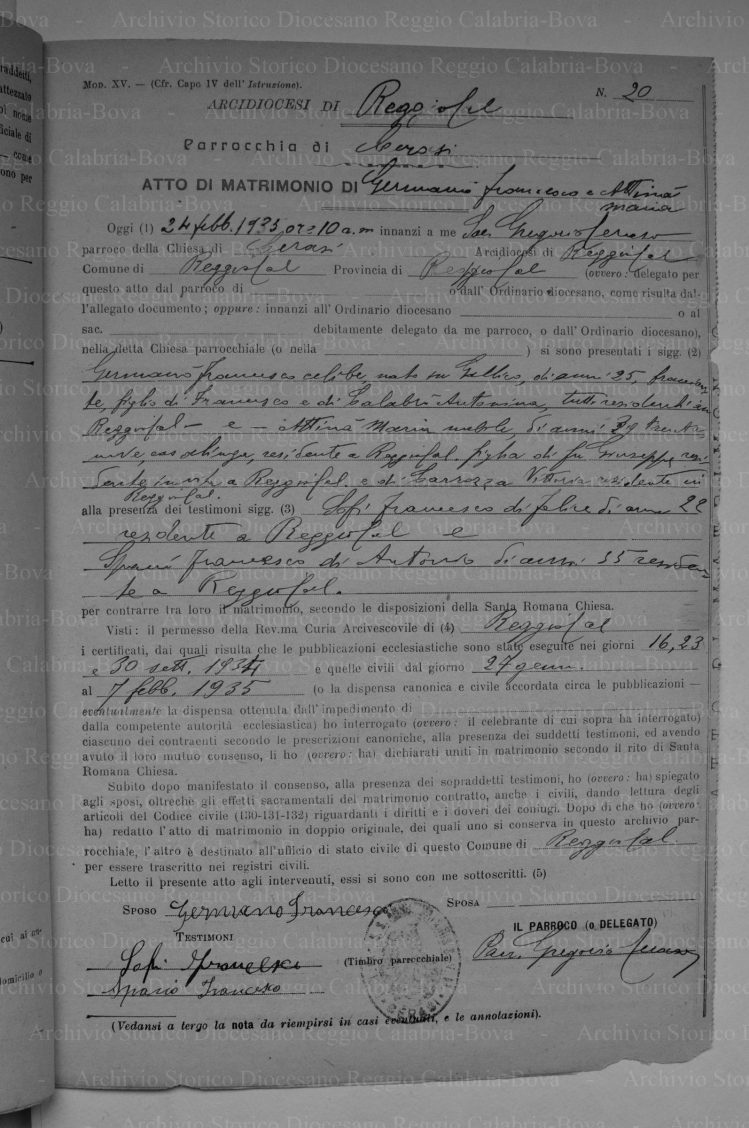 Archivio Storico Diocesano Reggio Calabria-Bova
MOD. XV. — (Cfr. Capo IV dell' Istruzione).
N. 20
ARCIDIOCESI DI Reggio Cal
Parrocchia di Cerasi
ATTO DI MATRIMONIO DI Germanò Francesco e Attinà
Maria
Oggi (1) 24 febb. 1935 ore 10 a.m innanzi a me Sac. Gregorio
parroco della Chiesa di Cerasi Arcidiocesi di Reggio Cal
Comune di Reggio Cal Provincia di Reggio Cal (ovvero: delegato per
questo atto dal parroco di o dall' Ordinario diocesano, come risulta dal-
l'allegato documento; oppure: innanzi all' Ordinario diocesano o al
sac. debitamente delegato da me parroco, o dall' Ordinario diocesano),
nella detta Chiesa parrocchiale (o nella ) si sono presentati i sigg. (2)
Germanò Francesco celibe, nato su Gallico, di anni 25,
te, figlio di Francesco e di Calabrò Antonina, tutti residenti in
Reggio Cal — e — Attinà Maria nubile, di anni 39 trenta
nove, casalinga, residente a Reggio Cal. figlia di fu Giuseppe resi
dente in vita a Reggio Cal. e di Carrozza Vittoria residente in
Reggio Cal.
alla presenza dei testimoni sigg. (3) Sofi Francesco di Felice di anni 22
residente a Reggio Cal e
Spanò Francesco di Antonio di anni 35 residen
te a Reggio Cal.
per contrarre tra loro il matrimonio, secondo le disposizioni della Santa Romana Chiesa.
Visti: il permesso della Rev.ma Curia Arcivescovile di (4) Reggio Cal
i certificati, dai quali risulta che le pubblicazioni ecclesiastiche sono state eseguite nei giorni 16, 23
e 30 sett. 1934 e quelle civili dal giorno 27 genn.
al 7 febb. 1935 (o la dispensa canonica e civile accordata circa le pubblicazioni —
eventualmente la dispensa ottenuta dall' impedimento di
dalla competente autorità ecclesiastica) ho interrogato (ovvero: il celebrante di cui sopra ha interrogato)
ciascuno dei contraenti secondo le prescrizioni canoniche, alla presenza dei suddetti testimoni, ed avendo
avuto il loro mutuo consenso, li ho (ovvero: ha) dichiarati uniti in matrimonio secondo il rito di Santa
Romana Chiesa.
Subito dopo manifestato il consenso, alla presenza dei sopraddetti testimoni, ho (ovvero: ha) spiegato
agli sposi, oltrechè gli effetti sacramentali del matrimonio contratto, anche i civili, dando lettura degli
articoli del Codice civile (130-131-132) riguardanti i diritti e i doveri dei coniugi. Dopo di che ho (ovvero:
ha) redatto l'atto di matrimonio in doppio originale, dei quali uno si conserva in questo archivio par-
rocchiale, l'altro è destinato all'ufficio di stato civile di questo Comune di Reggio Cal.
per essere trascritto nei registri civili.
Letto il presente atto agli intervenuti, essi si sono con me sottoscritti. (5)
SPOSO Germano Francesco SPOSA
TESTIMONI
IL PARROCO (o DELEGATO)
Sofi Francesco (Timbro parrocchiale) Parr. Gregorio
Spanò Francesco
(Vedansi a tergo la nota da riempirsi in casi eventuali, e le annotazioni).